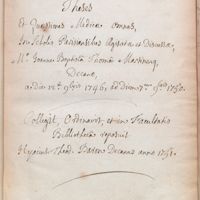 Theses
Et Quæstiones Medicæ omnes,
In Scholis Parisiensibus Agitatæ et Discussæ,
M.e Joanne Baptista Thoma Martinenq
Decano,
a die 12.a 9bris 1746, ad diem 7.am 9bris 1750.
Collegit, Ordinavit, et in Facultatis
Bibliotheca reposuit
Hyacint. Theod. Baron Decanus anno 1751.